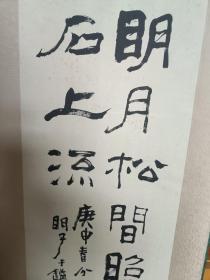 明月松間照
石上流
庚申春分